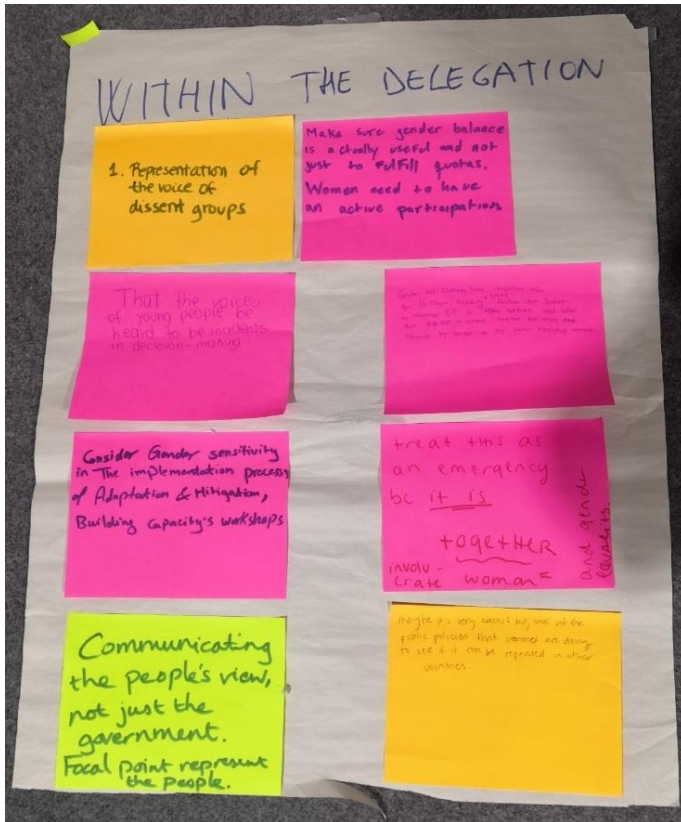 WITHIN THE DELEGATION
1. Representation of
the voice of
dissent groups
Make sure gender balance
is actually useful and not
just to fulfill quotas.
Women need to have
an active participation
That the voices
of young people be
heard to be incidents
in decision-making
Gender and
for decision making
Consider Gender sensitivity
in The implementation process
of Adaptation & Mitigation,
Building Capacity's workshops
treat this as
an emergency
bc it is
together
involu-
crate woman
and gender
equality.
Communicating
the people's view,
not just the
government.
Focal point represent
the people.
Maybe it is very but, look at the
public policies that women are doing
to see if it can be repeated in other
countries.